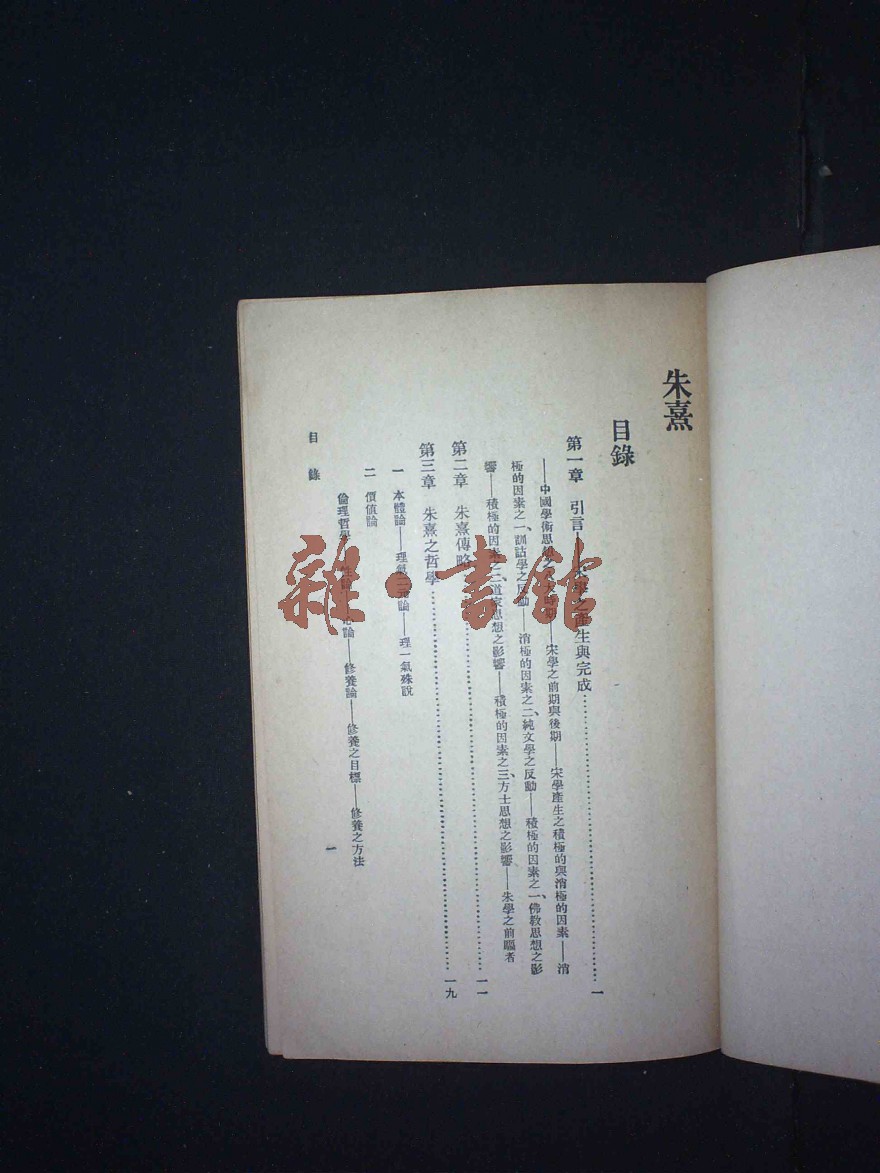 朱熹
目錄
第一章 引言——學之產生與完成……一
——中國學術思想之時期——宋學之前期與後期——宋學產生之積極的與消極的因素——消
極的因素之一、訓詁學之反動——消極的因素之二、純文學之反動——積極的因素之一、佛教思想之影
響——積極的因素之二、道家思想之影響——積極的因素之三、方士思想之影響——朱學之前驅者
第二章 朱熹傳略……一一
第三章 朱熹之哲學……一九
一 本體論——理氣二元論——理一氣殊說
二 價值論
倫理哲學——論——修養論——修養之目標——修養之方法
目錄
一
雜·書館